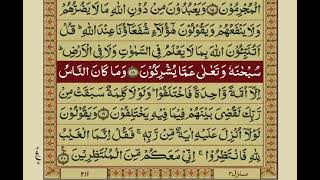 الْمُجْرِمُوْنَ ﴿۱۷﴾ وَيَعْبُدُوْنَ مِنْ دُوْنِ اللّٰهِ مَا لَا يَضُرُّهُمْ
وَلَا يَنْفَعُهُمْ وَيَقُوْلُوْنَ هٰٓؤُلَآءِ شُفَعَآؤُنَا عِنْدَ اللّٰهِ ؕ قُلْ
اَتُنَبِّـُٔوْنَ اللّٰهَ بِمَا لَا يَعْلَمُ فِى السَّمٰوٰتِ وَلَا فِى الْاَرْضِ ؕ
سُبْحٰنَهٗ وَتَعٰلٰى عَمَّا يُشْرِكُوْنَ ﴿۱۸﴾ وَمَا كَانَ النَّاسُ
اِلَّآ اُمَّةً وَّاحِدَةً فَاخْتَلَفُوْا ؕ وَلَوْلَا كَلِمَةٌ سَبَقَتْ مِنْ
رَّبِّكَ لَقُضِىَ بَيْنَهُمْ فِيْمَا فِيْهِ يَخْتَلِفُوْنَ ﴿۱۹﴾ وَيَقُوْلُوْنَ
لَوْلَآ اُنْزِلَ عَلَيْهِ اٰيَةٌ مِّنْ رَّبِّهٖ ۚ فَقُلْ اِنَّمَا الْغَيْبُ
لِلّٰهِ فَانْتَظِرُوْا ۚ اِنِّىْ مَعَكُمْ مِّنَ الْمُنْتَظِرِيْنَ ﴿۲۰﴾
منزل ۳ ۲۱۱